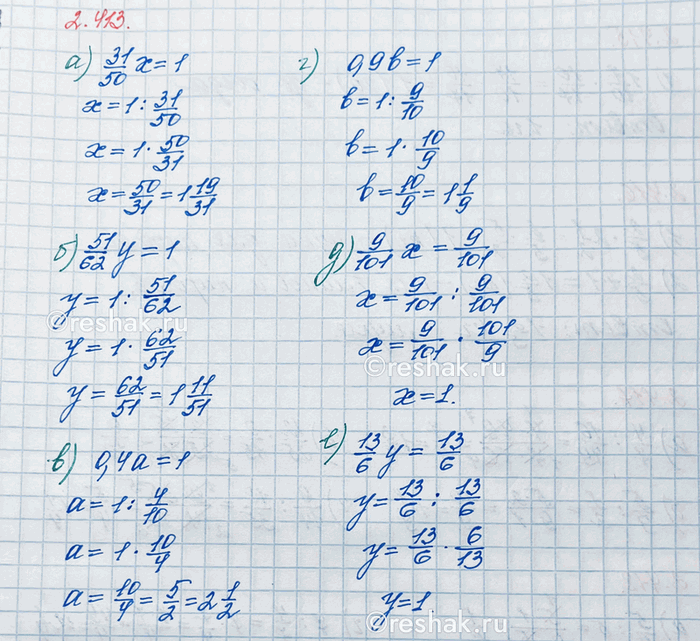 2.413.
а) 31/50 x = 1
x = 1 : 31/50
x = 1 · 50/31
x = 50/31 = 1 19/31
б) 51/62 y = 1
y = 1 : 51/62
y = 1 · 62/51
y = 62/51 = 1 11/51
в) 0,4a = 1
a = 1 : 4/10
a = 1 · 10/4
a = 10/4 = 5/2 = 2 1/2
г) 0,9b = 1
b = 1 : 9/10
b = 1 · 10/9
b = 10/9 = 1 1/9
д) 9/101 x = 9/101
x = 9/101 : 9/101
x = 9/101 · 101/9
x = 1.
е) 13/6 y = 13/6
y = 13/6 : 13/6
y = 13/6 · 6/13
y = 1
©reshak.ru
©reshak.ru
©reshak.ru
©reshak.ru